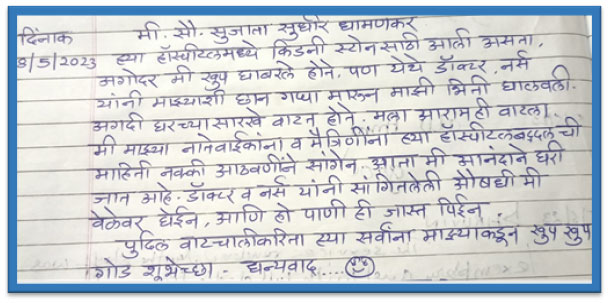 दिनांक
8/5/2023
मी. सौ. सुजाता सुधीर धामणकर
ह्या हॉस्पीटलमध्ये किडनी स्टोनसाठी आली असता.
अगोदर मी खुप घाबरले होते. पण येथे डॉक्टर, नर्स
यांनी माझ्याशी छान गप्पा मारून माझी भिती घालवली.
अगदी घरच्यासारखे वाटत होते. मला आरामही वाटला.
मी माझ्या नातेवाईकांना व मैत्रिणींना ह्या हॉस्पीटलबद्दल ची
माहिती नक्की आठवणीने सांगेन. आता मी आनंदाने घरी
जात आहे. डॉक्टर व नर्स यांनी सांगितलेली औषधी मी
वेळेवर घेईन, आणि हो पाणी ही जास्त पिईन.
पुढिल वाटचालीकरिता ह्या सर्वांना माझ्याकडून खुप खुप
गोड शुभेच्छा. धन्यवाद....